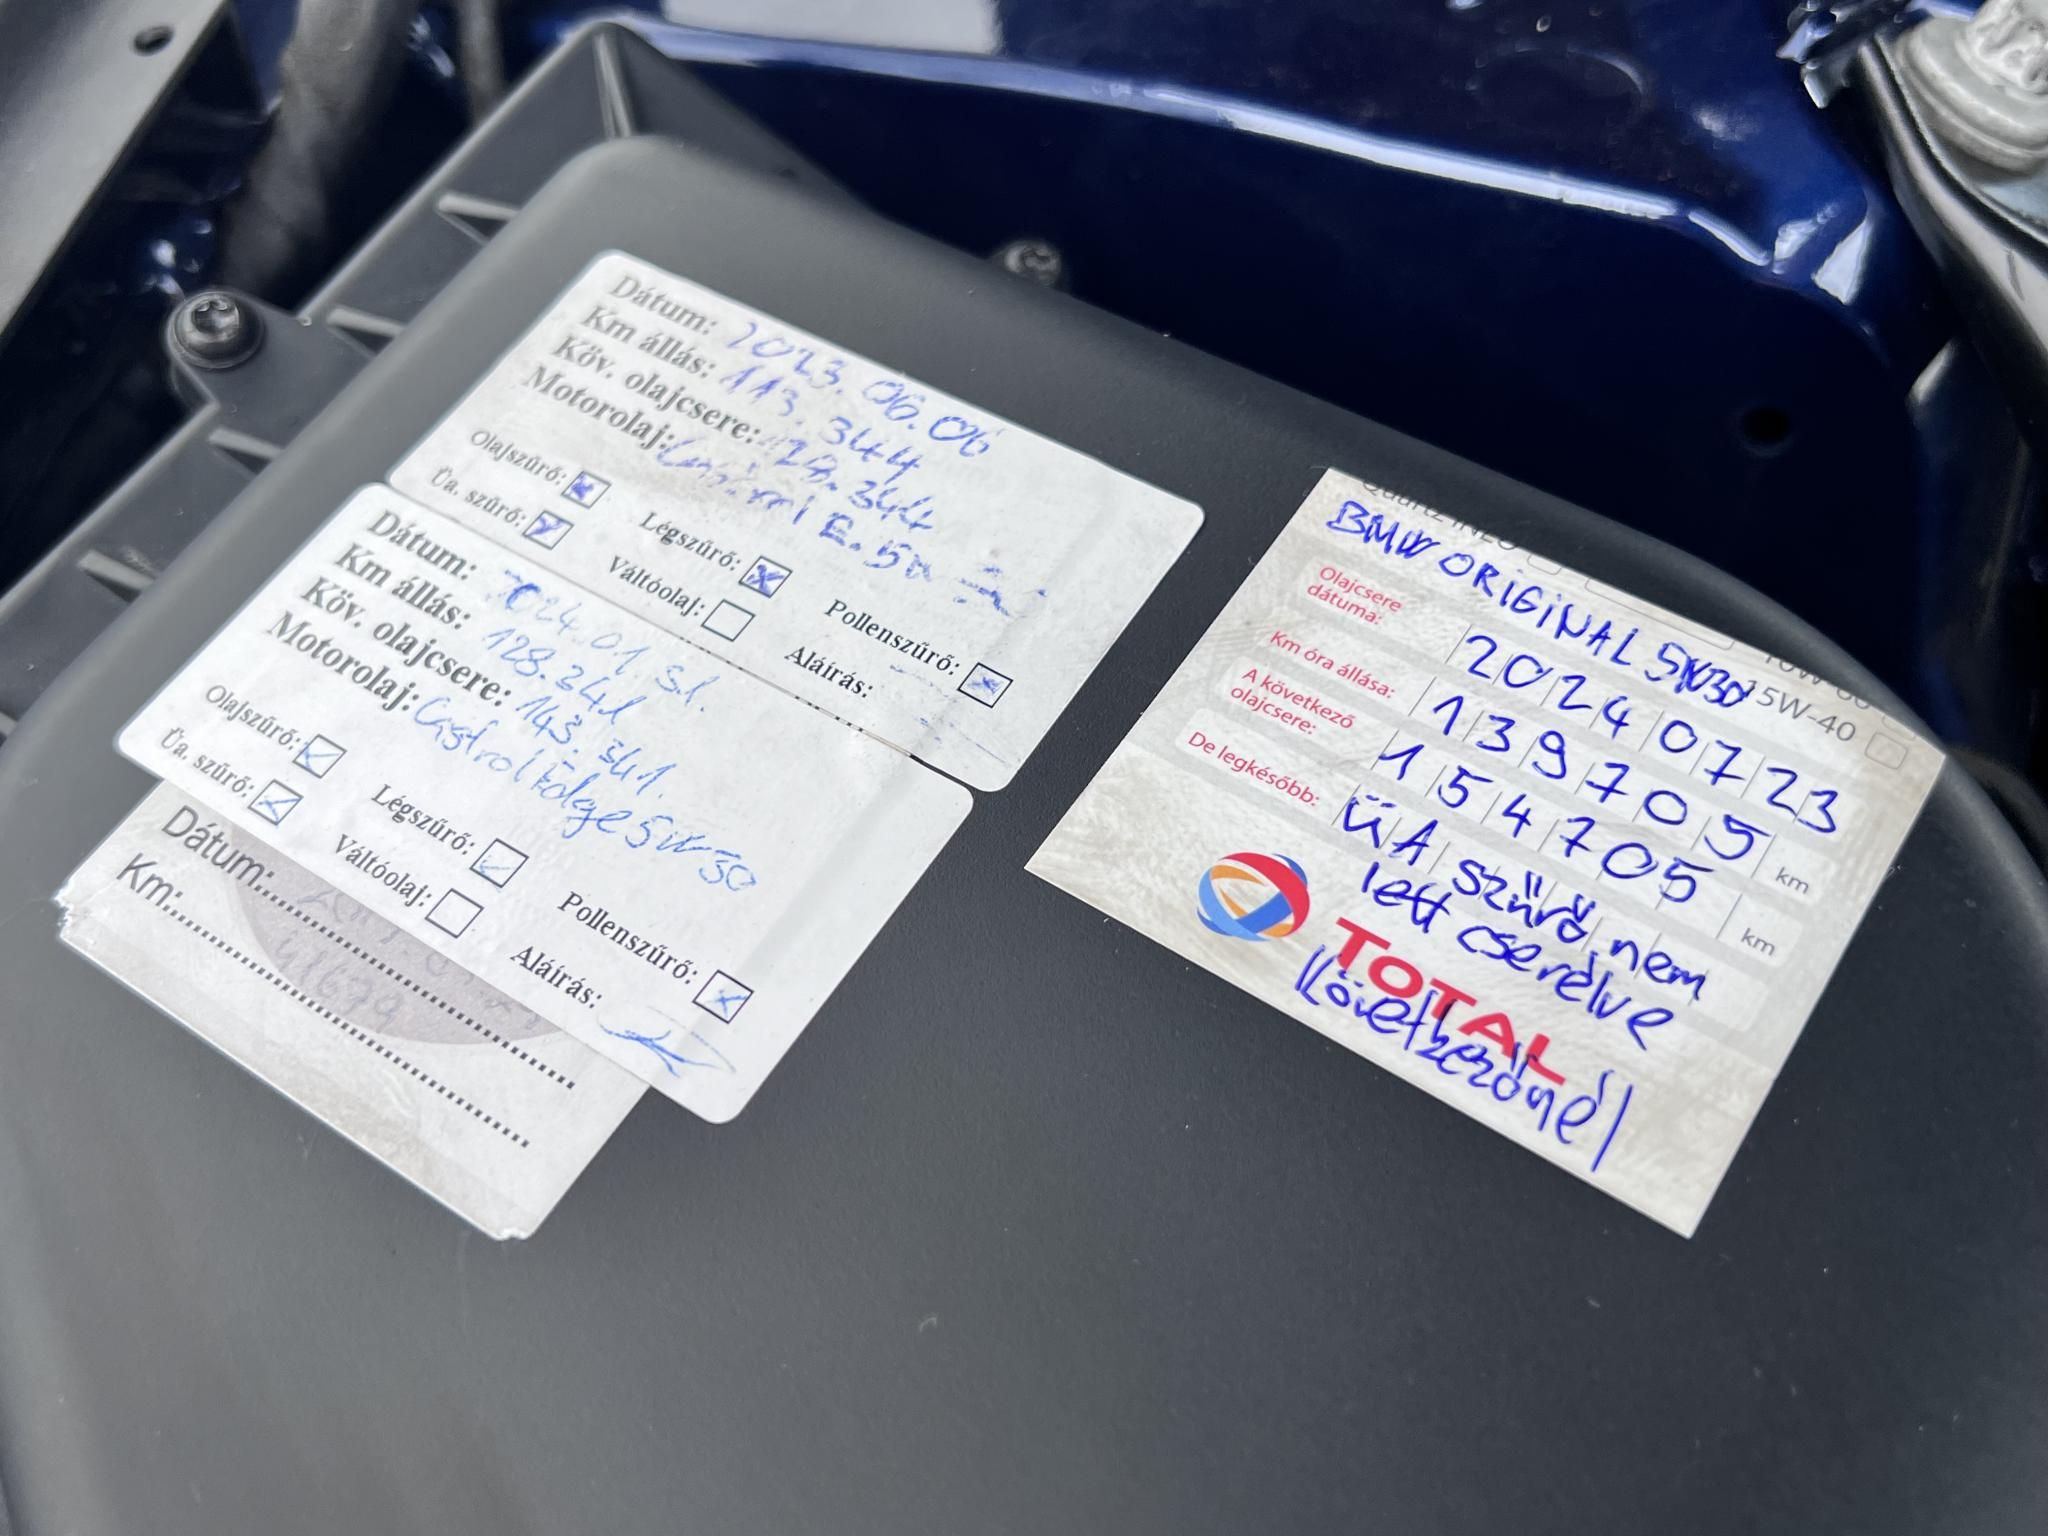 Dátum: 2023.06.06
Km állás: 113.344
Köv. olajcsere: 128.344
Motorolaj: Castrol E. 5w
Olajszűrő: Légszűrő: Pollenszűrő:
Üa. szűrő: Váltóolaj: Aláírás:
Dátum: 2024.01.31.
Km állás: 128.341
Köv. olajcsere: 143.341.
Motorolaj: Castrol Edge 5W-30
Olajszűrő: Légszűrő: Pollenszűrő:
Üa. szűrő: Váltóolaj: Aláírás:
Dátum:
Km: 41679
Quartz INEO
BMW ORIGINAL 5W30 15W-40
Olajcsere dátuma: 20240723
Km óra állása: 139705 km
A következő olajcsere: 154705 km
De legkésőbb: ÜA szűrő nem
lett cserélve
TOTAL
Következőnél